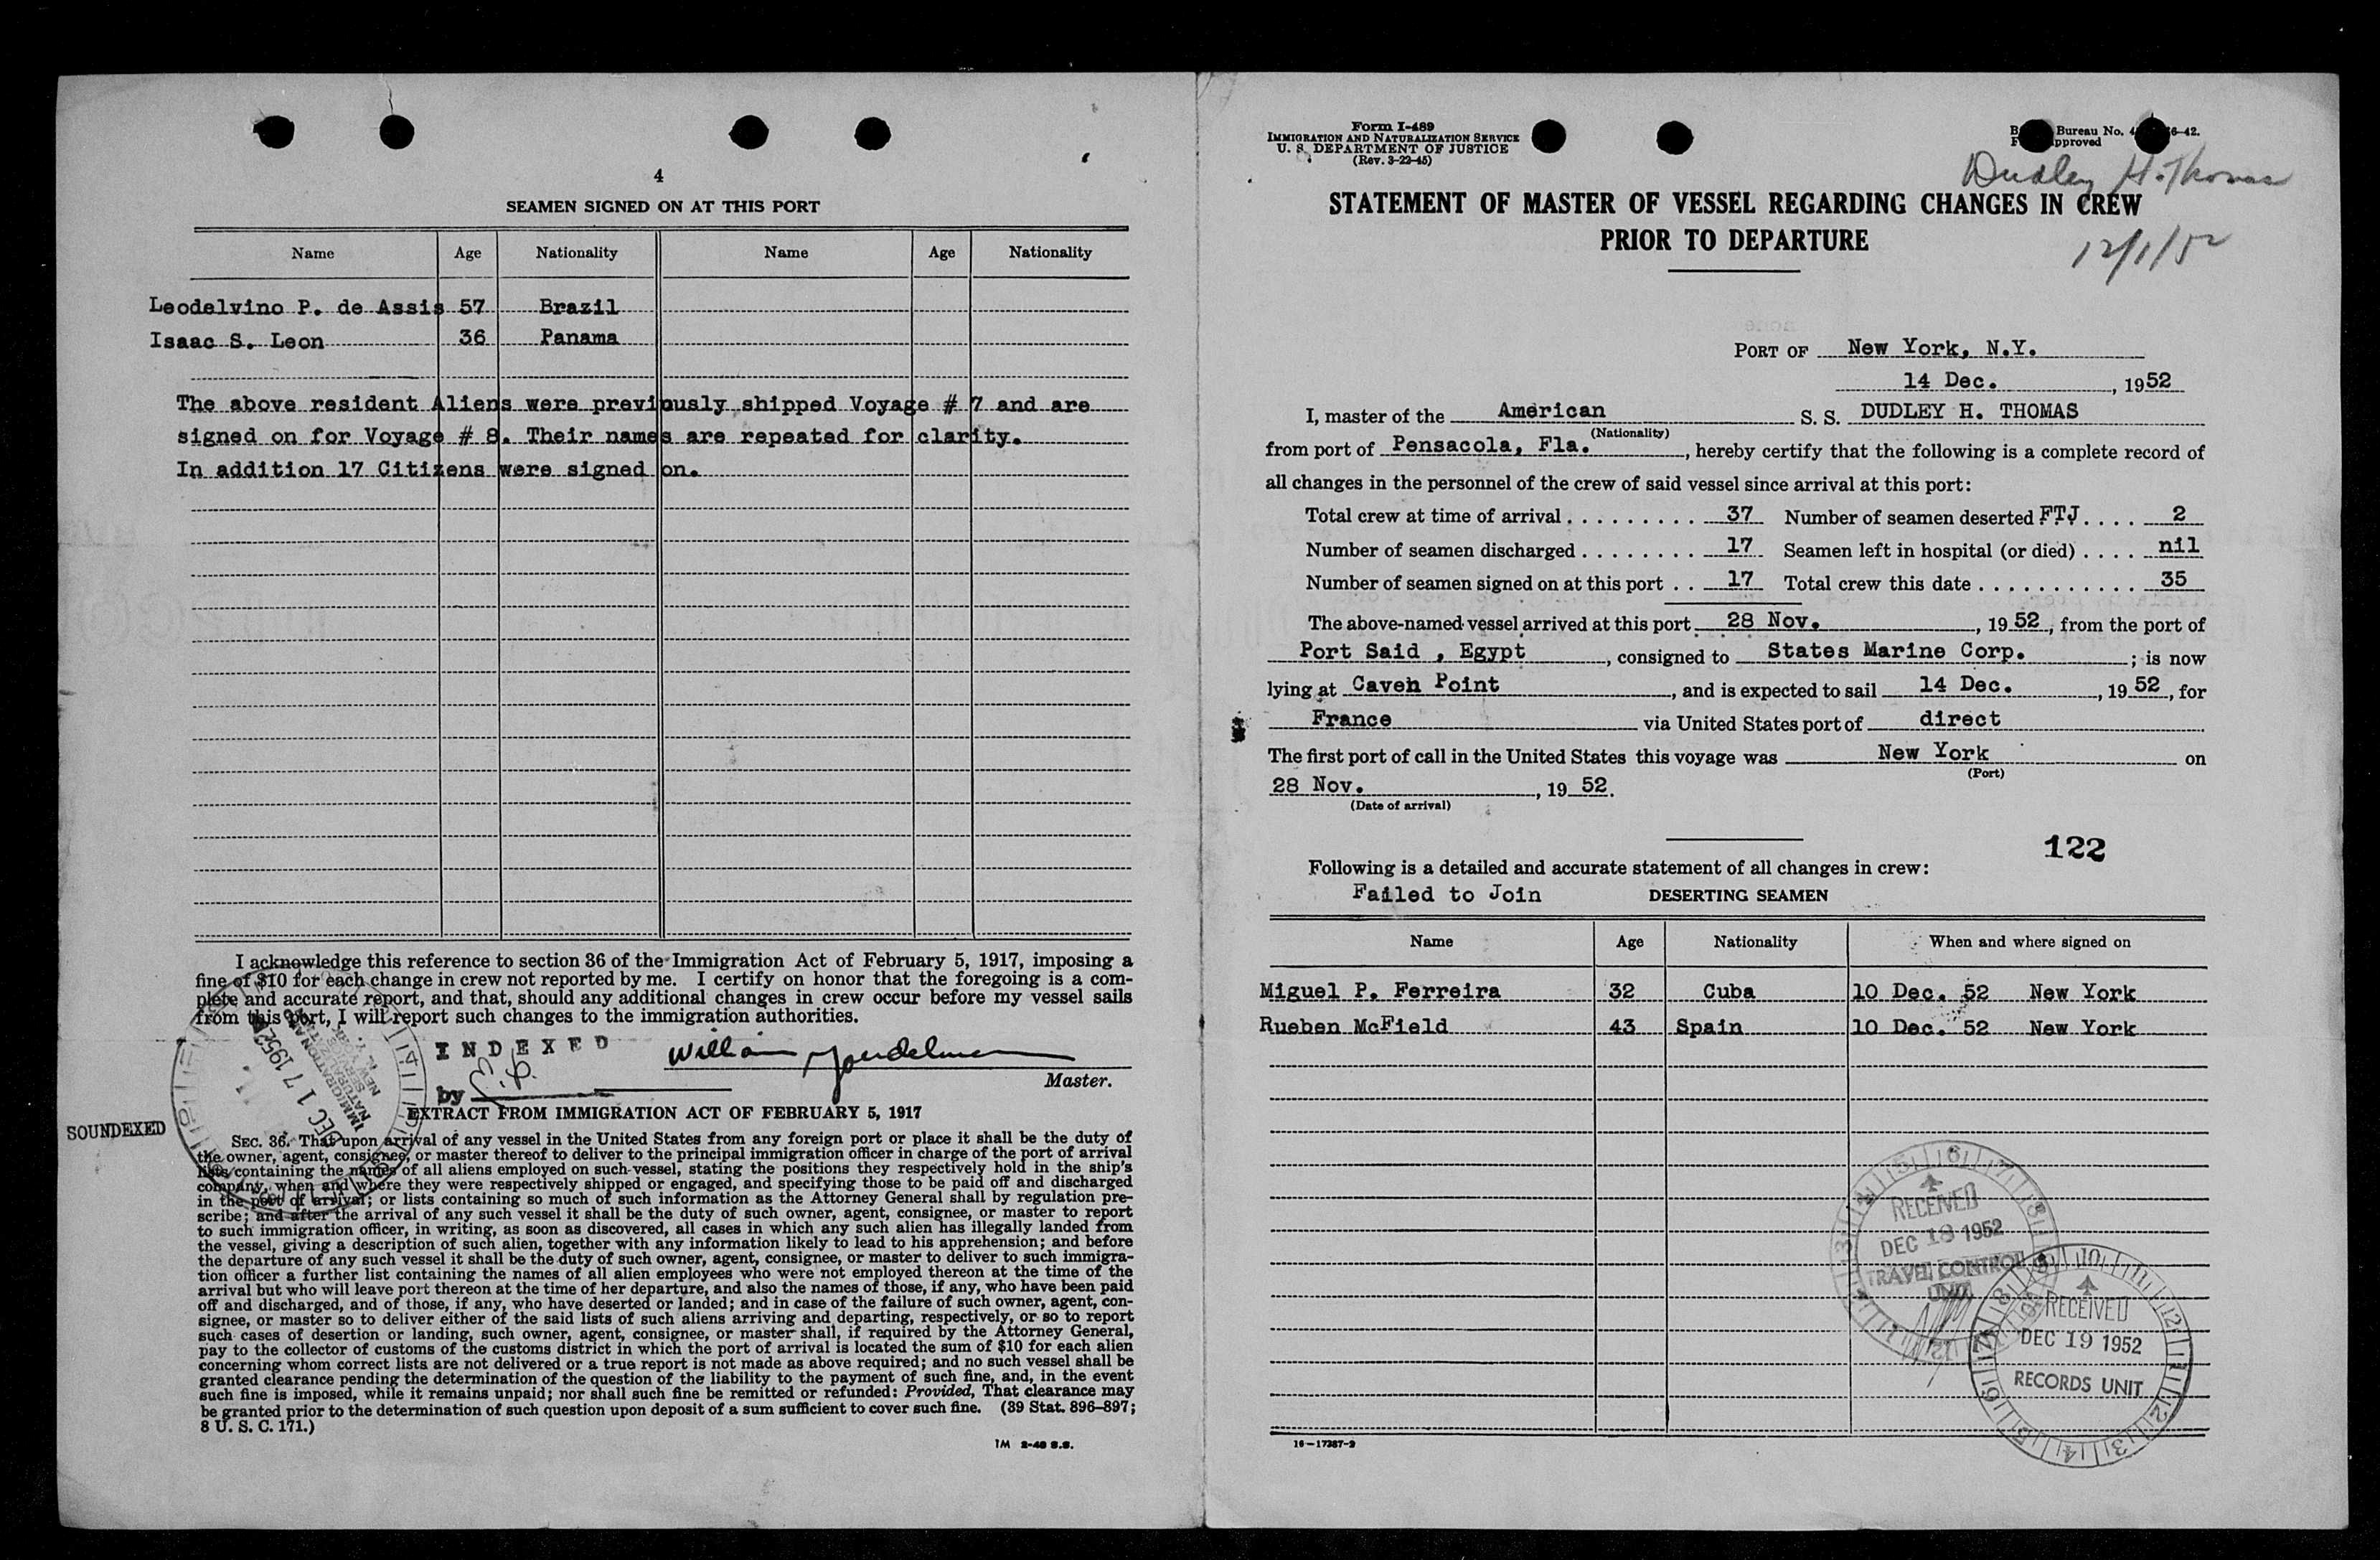 4
SEAMEN SIGNED ON AT THIS PORT
Name Age Nationality Name Age Nationality
Leodelvino P. de Assis 57 Brazil
Isaac S. Leon 36 Panama
The above resident Aliens were previously shipped Voyage # 7 and are
signed on for Voyage # 8. Their names are repeated for clarity.
In addition 17 Citizens were signed on.
I acknowledge this reference to section 36 of the Immigration Act of February 5, 1917, imposing a
fine of $10 for each change in crew not reported by me. I certify on honor that the foregoing is a com-
plete and accurate report, and that, should any additional changes in crew occur before my vessel sails
from this port, I will report such changes to the immigration authorities.
INDEXED
by
William
Master.
DEC 17 1952
SOUNDEXED
EXTRACT FROM IMMIGRATION ACT OF FEBRUARY 5, 1917
SEC. 36. That upon arrival of any vessel in the United States from any foreign port or place it shall be the duty of
the owner, agent, consignee, or master thereof to deliver to the principal immigration officer in charge of the port of arrival
lists containing the names of all aliens employed on such vessel, stating the positions they respectively hold in the ship's
company, when and where they were respectively shipped or engaged, and specifying those to be paid off and discharged
in the port of arrival; or lists containing so much of such information as the Attorney General shall by regulation pre-
scribe; and after the arrival of any such vessel it shall be the duty of such owner, agent, consignee, or master to report
to such immigration officer, in writing, as soon as discovered, all cases in which any such alien has illegally landed from
the vessel, giving a description of such alien, together with any information likely to lead to his apprehension; and before
the departure of any such vessel it shall be the duty of such owner, agent, consignee, or master to deliver to such immigra-
tion officer a further list containing the names of all alien employees who were not employed thereon at the time of the
arrival but who will leave port thereon at the time of her departure, and also the names of those, if any, who have been paid
off and discharged, and of those, if any, who have deserted or landed; and in case of the failure of such owner, agent, con-
signee, or master so to deliver either of the said lists of such aliens arriving and departing, respectively, or so to report
such cases of desertion or landing, such owner, agent, consignee, or master shall, if required by the Attorney General,
pay to the collector of customs of the customs district in which the port of arrival is located the sum of $10 for each alien
concerning whom correct lists are not delivered or a true report is not made as above required; and no such vessel shall be
granted clearance pending the determination of the question of the liability to the payment of such fine, and, in the event
such fine is imposed, while it remains unpaid; nor shall such fine be remitted or refunded: Provided, That clearance may
be granted prior to the determination of such question upon deposit of a sum sufficient to cover such fine. (39 Stat. 896–897;
8 U. S. C. 171.)
Form I-489
IMMIGRATION AND NATURALIZATION SERVICE
U. S. DEPARTMENT OF JUSTICE
(Rev. 3-22-45)
Bureau No.
approved
Dudley H. Thomas
STATEMENT OF MASTER OF VESSEL REGARDING CHANGES IN CREW
PRIOR TO DEPARTURE
12/1/52
PORT OF New York, N.Y.
14 Dec., 1952
I, master of the American S. S. DUDLEY H. THOMAS
(Nationality)
from port of Pensacola, Fla., hereby certify that the following is a complete record of
all changes in the personnel of the crew of said vessel since arrival at this port:
Total crew at time of arrival 37 Number of seamen deserted FTJ 2
Number of seamen discharged 17 Seamen left in hospital (or died) nil
Number of seamen signed on at this port 17 Total crew this date 35
The above-named vessel arrived at this port 28 Nov., 1952, from the port of
Port Said , Egypt, consigned to States Marine Corp.; is now
lying at Caven Point, and is expected to sail 14 Dec., 1952, for
France via United States port of direct
The first port of call in the United States this voyage was New York on
(Port)
28 Nov., 19 52.
(Date of arrival)
122
Following is a detailed and accurate statement of all changes in crew:
Failed to Join DESERTING SEAMEN
Name Age Nationality When and where signed on
Miguel P. Ferreira 32 Cuba 10 Dec. 52 New York
Rueben McField 43 Spain 10 Dec. 52 New York
RECEIVED
DEC 18 1952
TRAVEL CONTROL
UNIT
RECEIVED
DEC 19 1952
RECORDS UNIT
16—17387-2